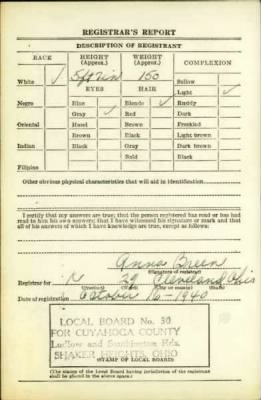 REGISTRAR'S REPORT
DESCRIPTION OF REGISTRANT
RACE HEIGHT (Approx.) WEIGHT (Approx.) COMPLEXION
White ✓ 5 ft 7 in 150 Sallow
EYES HAIR Light ✓
Negro Blue Blonde ✓ Ruddy
Gray ✓ Red Dark
Oriental Hazel Brown Freckled
Brown Black Light brown
Indian Black Gray Dark brown
Bald Black
Filipino
Other obvious physical characteristics that will aid in identification
I certify that my answers are true; that the person registered has read or has had
read to him his own answers; that I have witnessed his signature or mark and that
all of his answers of which I have knowledge are true, except as follows:
Anna Breen
(Signature of registrar)
Registrar for 29 Cleveland Ohio
(Precinct) (Ward) (City or county) (State)
Date of registration October 16-1940
LOCAL BOARD No. 30
FOR CUYAHOGA COUNTY
Ludlow and Southington Rds.
SHAKER HEIGHTS, OHIO
(STAMP OF LOCAL BOARD)
(The stamp of the Local Board having jurisdiction of the registrant
shall be placed in the above space.)